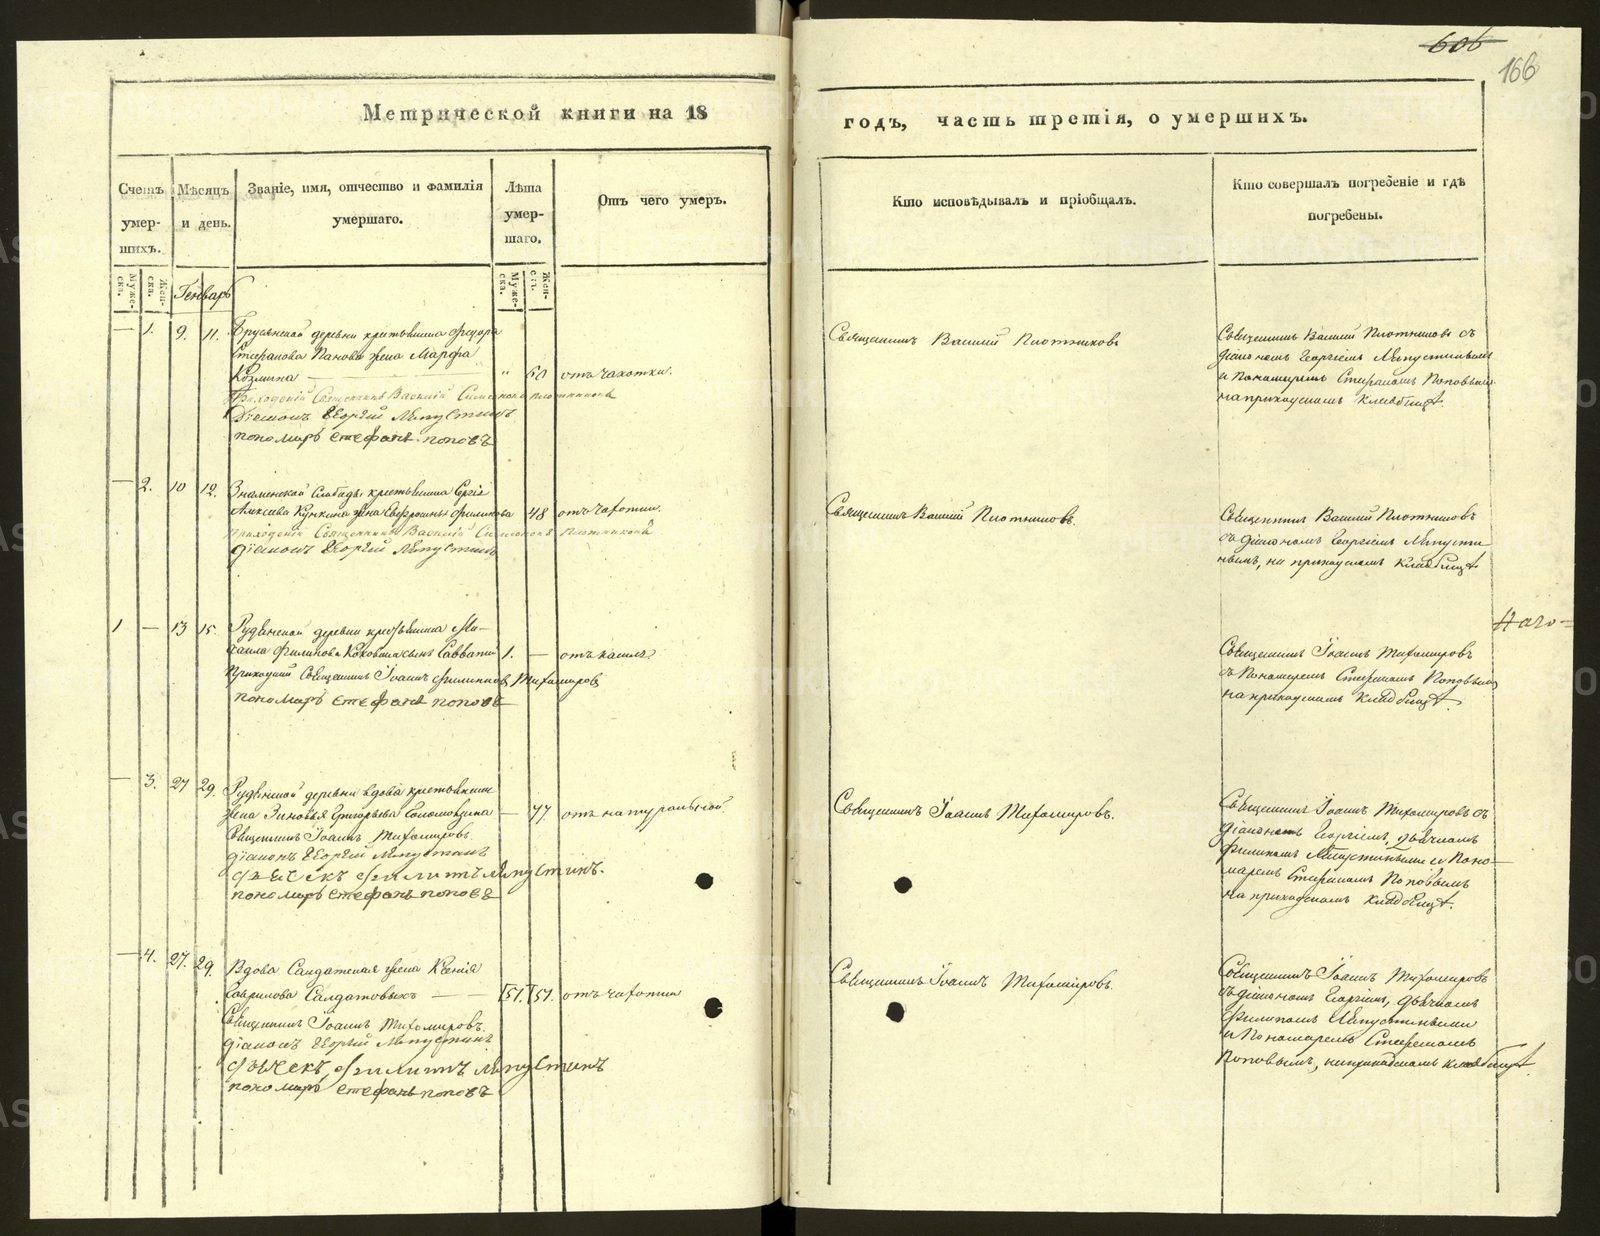 606
166
Метрической книги на 18
годъ, часть третія, о умершихъ.
Счетъ умер-шихъ.
Мѣсяцъ и день.
Званіе, имя, отчество и фамилія умершаго.
Лѣта умер-шаго.
Отъ чего умеръ.
Кто исповѣдывалъ и пріобщалъ.
Кто совершалъ погребеніе и гдѣ погребены.
Муже-ска.
Жен-ска.
Генварь
Муже-ска.
Жен-ска.
— 1. 9. 11. Брусянской деревни крестьянина Федора
Стефанова Панова жена Марфа
Козмина — " 60 отъ чахотки.
Приходскій Священникъ Василій Симеоновъ Плотниковъ
Діаконъ Георгій Ляпустинъ
пономарь Стефанъ Поповъ
Священникъ Василій Плотниковъ
Священникъ Василій Плотниковъ съ
діакономъ Георгіемъ Ляпустинымъ
и Пономаремъ Стефаномъ Поповымъ
на приходскомъ кладбищѣ.
— 2. 10 12. Знаменской Слободы крестьянина Сергія
Алексѣева жена Филипова 48 отъ чахотки.
Приходскій Священникъ Василій Симеоновъ Плотниковъ
діаконъ Георгій Ляпустинъ
Священникъ Василій Плотниковъ.
Священникъ Василій Плотниковъ
съ діакономъ Георгіемъ Ляпусти-
нымъ, на приходскомъ кладбищѣ
1 — 13 15. Рудянской деревни крестьянина Ми-
хаила Филипова сынъ Савватий 1. — отъ кашля.
Приходскій Священникъ Іоаннъ Филиповъ Тихомировъ
пономарь Стефанъ Поповъ
Священникъ Іоаннъ Тихомировъ
съ Пономаремъ Стефаномъ Поповымъ
на приходскомъ кладбищѣ.
— 3. 27 29. Рудянской деревни вдова крестьянская
жена Зиновья Григорьева Соломеина — 77. отъ натуральной.
Священникъ Іоаннъ Тихомировъ.
діаконъ Георгій Ляпустинъ
дьячекъ Филиппъ Ляпустинъ.
пономарь Стефанъ Поповъ
Священникъ Іоаннъ Тихомировъ.
Священникъ Іоаннъ Тихомировъ съ
діакономъ Георгіемъ, дьячкомъ
Филипомъ Ляпустиными и Поно-
маремъ Стефаномъ Поповымъ
на приходскомъ кладбищѣ.
— 4. 27. 29. Вдова Салдатская жена Ксенія
Гаврилова Салдатовыхъ — 51. 51. отъ чахотки
Священникъ Іоаннъ Тихомировъ.
діаконъ Георгій Ляпустинъ
дьячекъ Филиппъ Ляпустинъ
пономарь Стефанъ Поповъ
Священникъ Іоаннъ Тихомировъ.
Священникъ Іоаннъ Тихомировъ
съ діакономъ Георгіемъ, дьячкомъ
Филипомъ Ляпустиными
и Пономаремъ Стефаномъ
Поповымъ, на приходскомъ кладбищѣ.